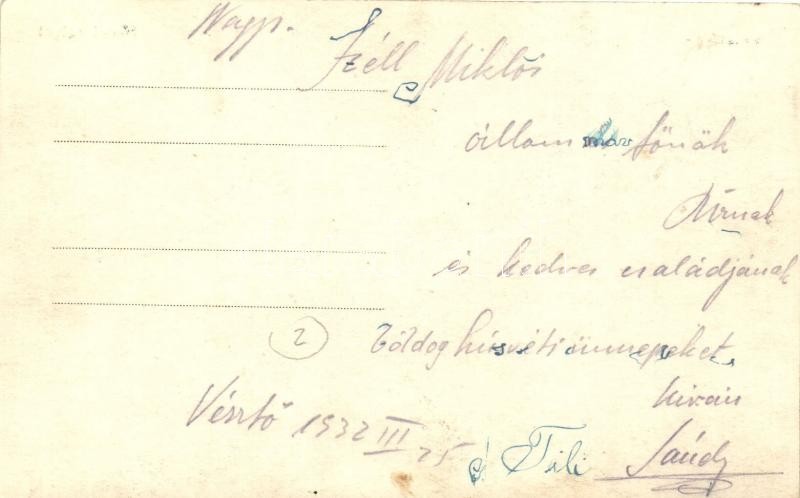 Nagys.
Széll Miklós
állam máv főnök
Úrnak
és kedves családjának
Boldog húsvéti ünnepeket
kíván
Vésztő 1932 III 25
é. Tili Sándor
2